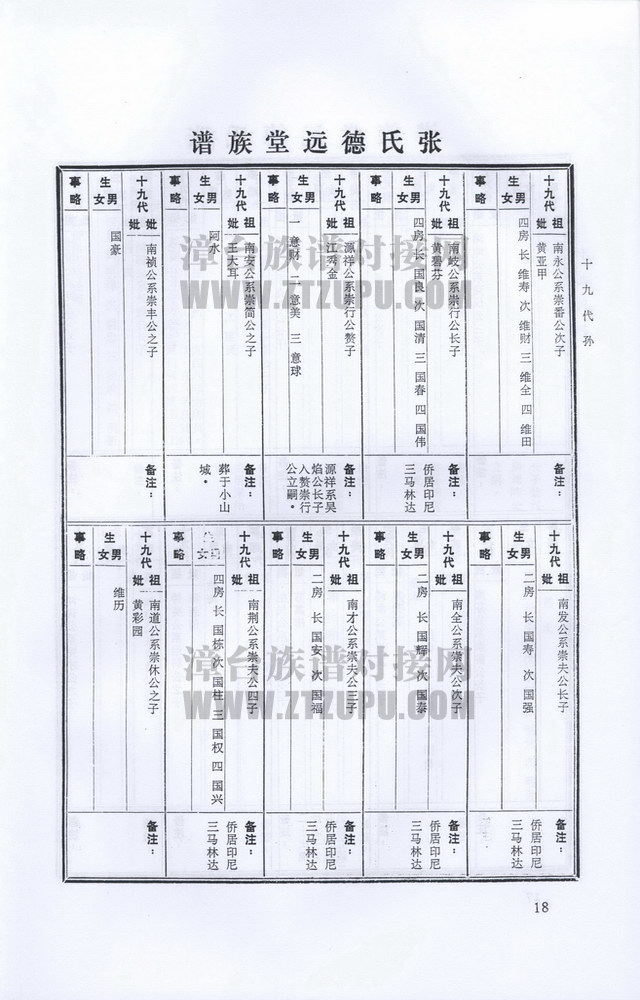 张氏德远堂族谱
十九代孙
十九代祖
南永公系崇番公次子
妣
黄亚甲
生男女
四房 长 维寿 次 维财 三 维全 四 维田
事略
备注：
十九代祖
南岐公系崇行公长子
妣
黄碧芬
生男女
四房 长 国良 次 国清 三 国春 四 国伟
事略
备注：
侨居印尼
三马林达
十九代祖
源祥公系崇行公赘子
妣
江秀金
生男女
一 意财 二 意美 三 意球
事略
备注：
源祥系吴
焰公长子
入赘崇行
公立嗣。
十九代祖
南安公系崇简公之子
妣
王大耳
生男女
阿水
事略
备注：
葬于小山
城。
十九代妣
南祯公系崇丰公之子
妣
生男女
国豪
事略
备注：
十九代祖
南发公系崇夫公长子
妣
生男女
二房 长 国寿 次 国强
事略
备注：
侨居印尼
三马林达
十九代祖
南全公系崇夫公次子
妣
生男女
二房 长 国辉 次 国泰
事略
备注：
侨居印尼
三马林达
十九代祖
南才公系崇夫公三子
妣
生男女
二房 长 国安 次 国福
事略
备注：
侨居印尼
三马林达
十九代祖
南荆公系崇夫公四子
妣
生男女
四房 长 国栋 次 国柱 三 国权 四 国兴
事略
备注：
侨居印尼
三马林达
十九代祖
南道公系崇休公之子
妣
黄彩园
生男女
维历
事略
备注：
18
漳台族谱对接网
WWW.ZTZUPU.COM
漳台族谱对接网
WWW.ZTZUPU.COM